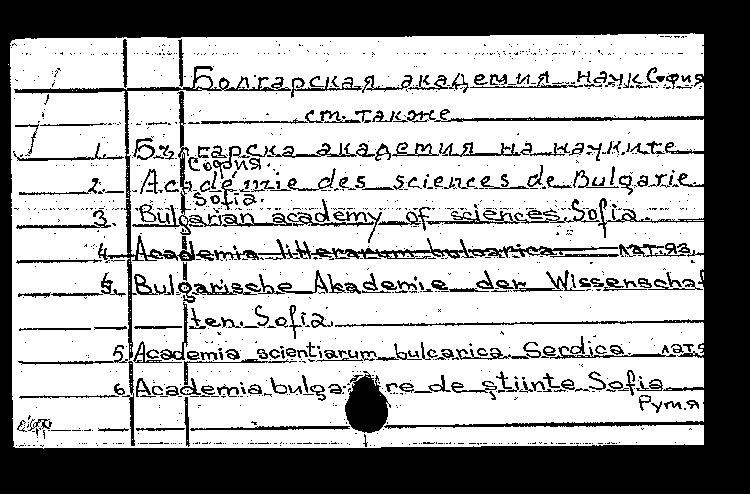 Болгарская академия наук София
ст. также
1. Българска академия на науките
София.
2. Académie des sciences de Bulgarie
Sofia.
3. Bulgarian academy of sciences. Sofia
4. Academia litterarum bulgarica. лат.яз.
4. Bulgarische Akademie der Wissenschaf
ten. Sofia.
5 Academia scientiarum bulgarica Serdica лат.я
6 Academia bulga re de ştiinte Sofia
Рум.я